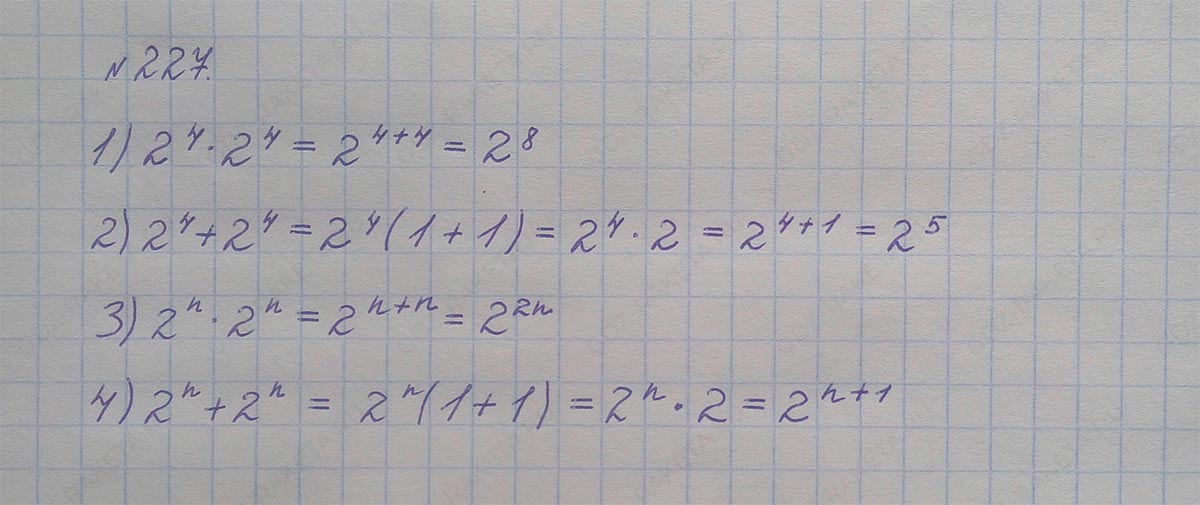 № 227.
1) 2⁴ · 2⁴ = 2⁴⁺⁴ = 2⁸
2) 2⁴ + 2⁴ = 2⁴(1 + 1) = 2⁴ · 2 = 2⁴⁺¹ = 2⁵
3) 2ⁿ · 2ⁿ = 2ⁿ⁺ⁿ = 2²ⁿ
4) 2ⁿ + 2ⁿ = 2ⁿ(1 + 1) = 2ⁿ · 2 = 2ⁿ⁺¹